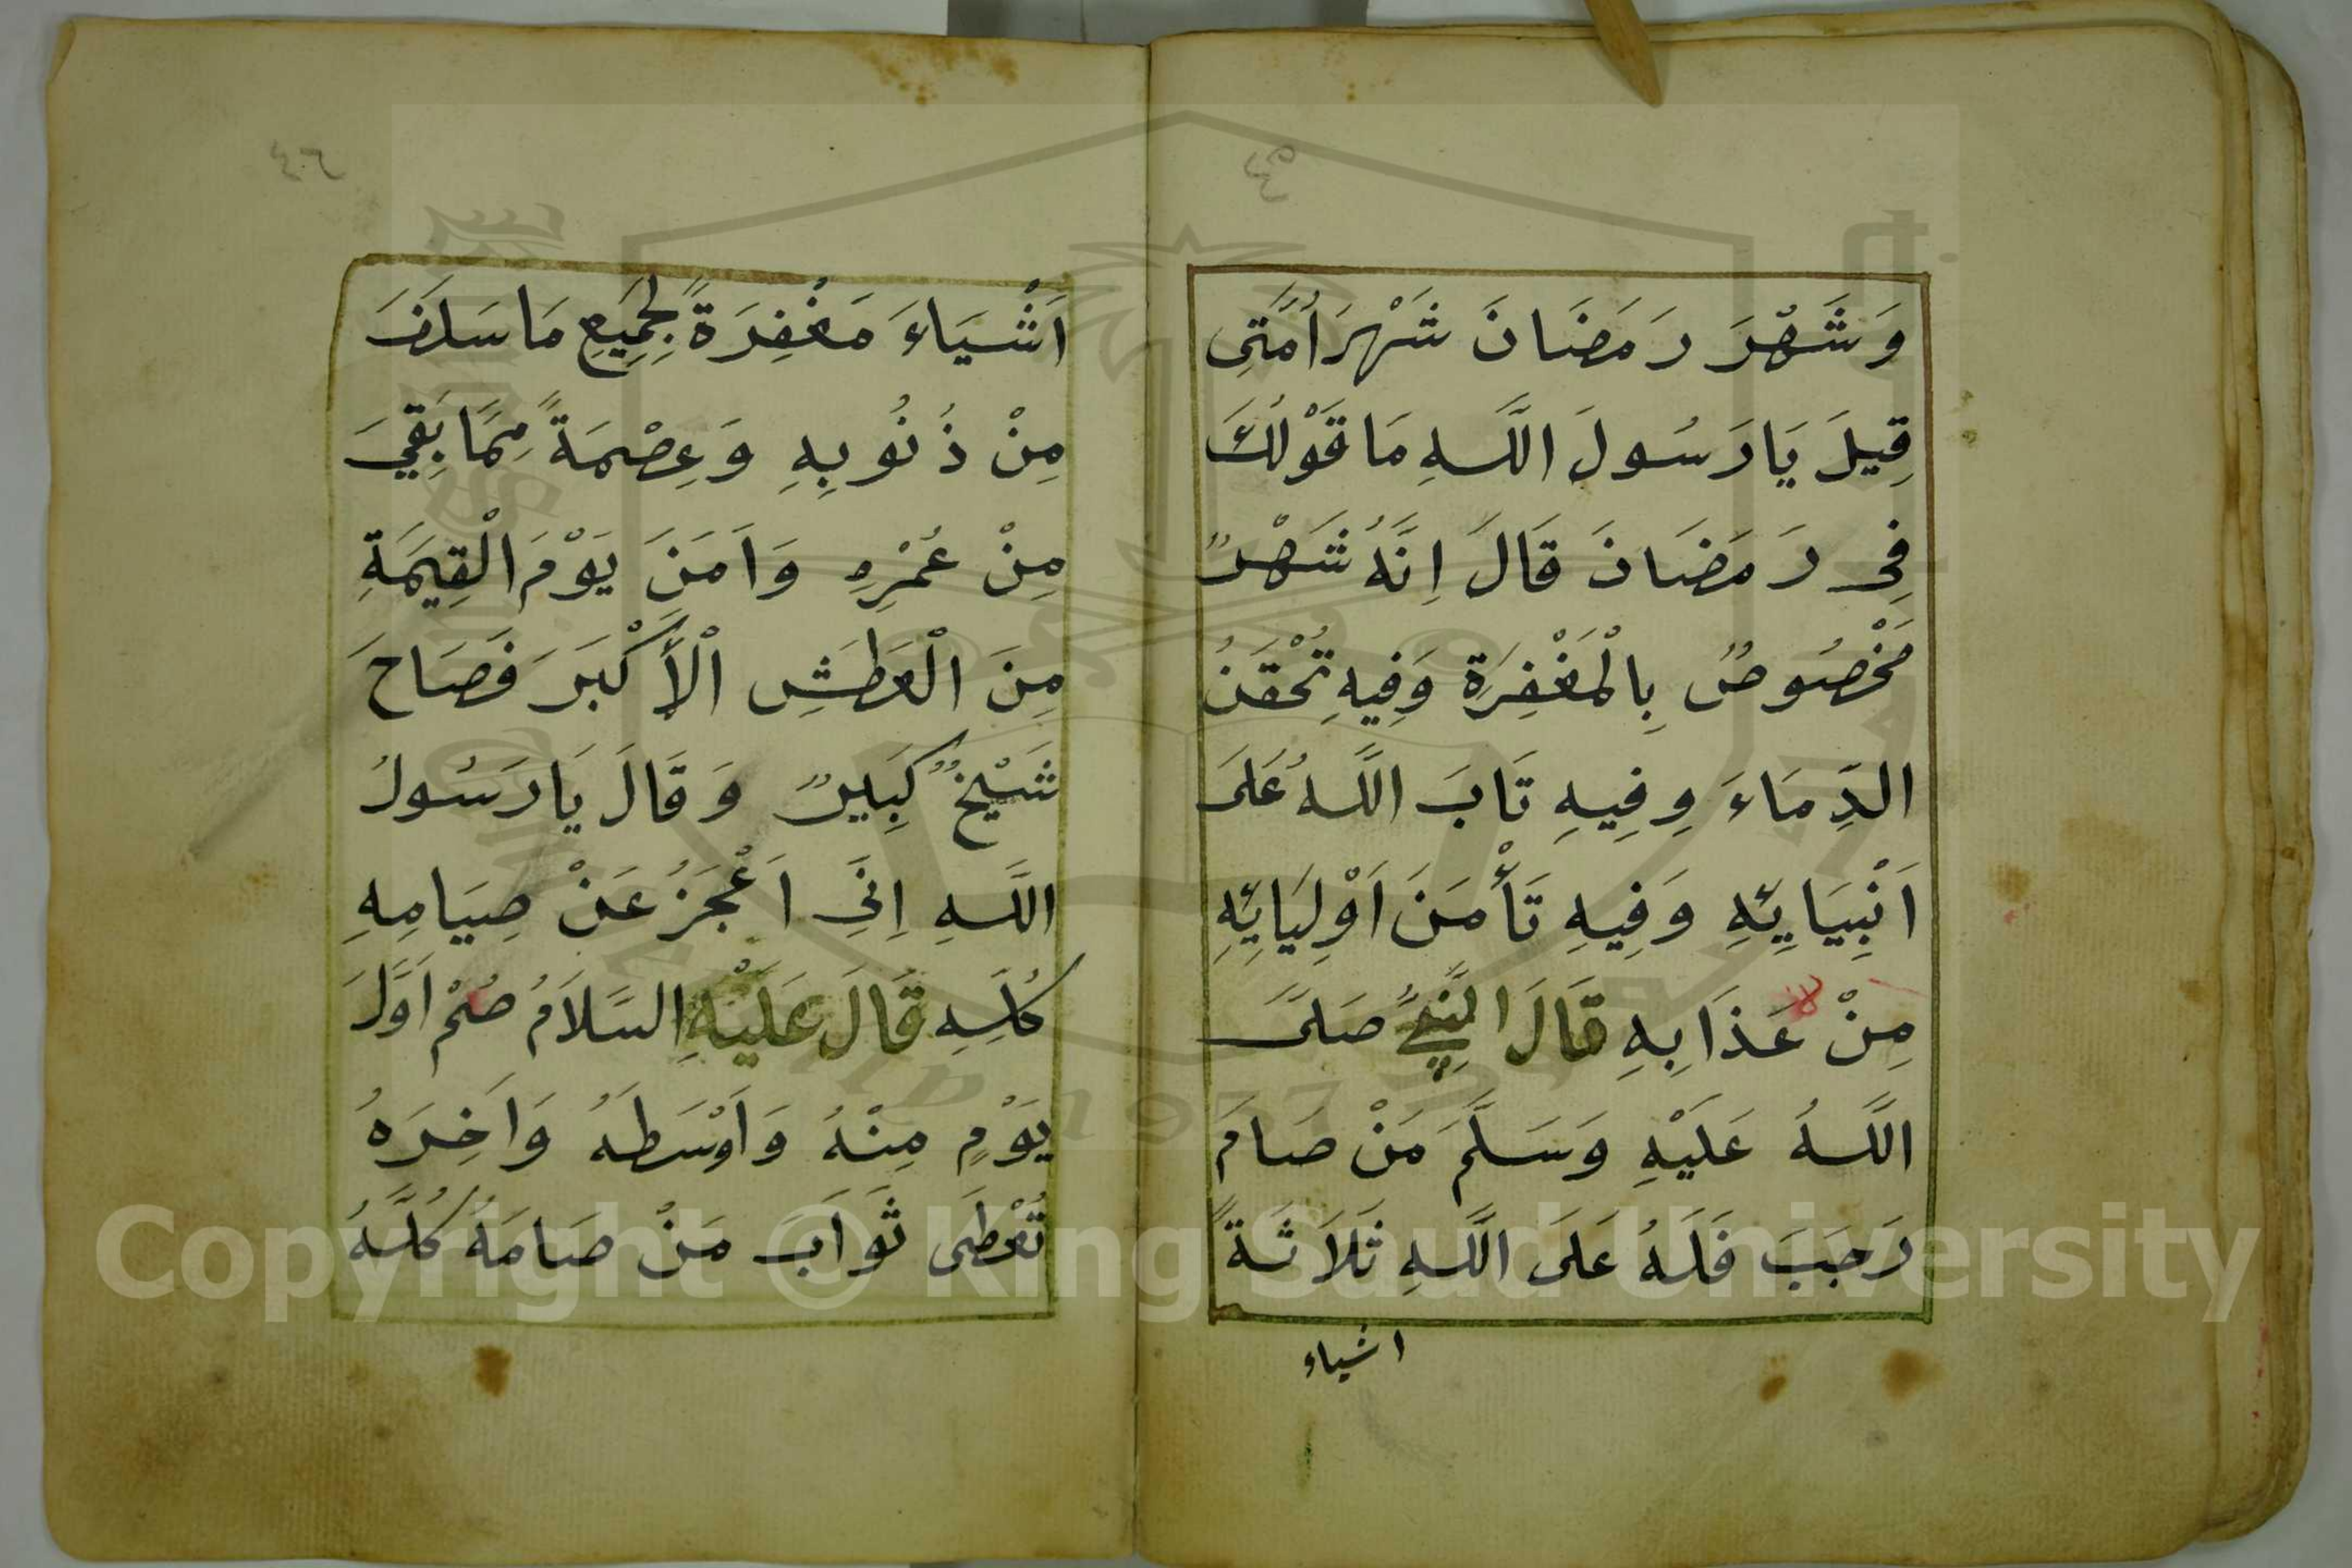 وَشَهْرَ رَمَضَانَ شَهْرَ اُمَّتِى
قِيلَ يَا رَسُولَ اللَّهِ مَا قَوْلُكَ
فِى رَمَضَانَ قَالَ اِنَّهُ شَهْرٌ
مَخْصُوصٌ بِالْمَغْفِرَةِ وَفِيهِ تُحْقَنُ
الدِّمَاءَ وِفِيهِ تَابَ اللَّهُ عَلَى
اَنْبِيَايِئِهِ وَفِيهِ تَأْمَنَ اَوْلِيَايِئِهِ
مِنْ عَذَابِهِ قَالَ النَّبِيُّ صَلَّى
اللَّهُ عَلَيْهِ وَسَلَّمَ مَنْ صَامَ
رَجَبَ فَلَهُ عَلَى اللَّهِ ثَلَاثَةً
اشياء
اَشْيَاءَ مَغْفِرَةً لِجَمِيعِ مَا سَلَفَ
مِنْ ذُنُوبِهِ وَعِصْمَةً مِمَّا بَقِيَ
مِنْ عُمْرِهِ وَاَمَنَ يَوْمَ الْقِيَمَةِ
مِنَ الْعَطَشِ الْأَكْبَرَ فَصَاحَ
شَيْخٌ كَبِيرٌ وَقَالَ يَا رَسُولُ
اللَّهِ اِنِّى اَعْجَزُ عَنْ صِيَامِهِ
كُلِّهِ قَالَ عَلَيْهِ السَّلَامُ صُمْ اَوَّلَ
يَوْمٍ مِنْهُ وَاَوْسَطَهُ وَاَخِرَهُ
تُعْطَى ثَوَابَ مَنْ صَامَهُ كُلَّهُ
Copyright © King Saud University